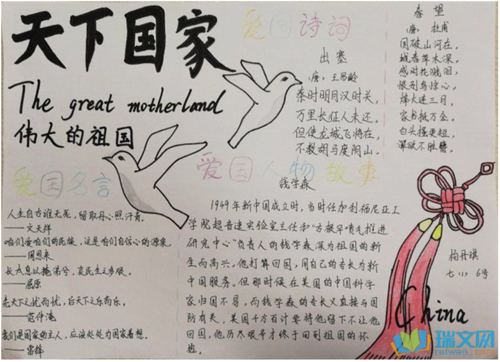 天下国家
The great motherland
伟大的祖国
爱国诗词
出塞
(唐) 王昌龄
秦时明月汉时关,
万里长征人未还。
但使龙城飞将在,
不教胡马度阴山。
春望
(唐) 杜甫
国破山河在,
城春草木深。
感时花溅泪,
恨别鸟惊心。
烽火连三月,
家书抵万金。
白头搔更短,
浑欲不胜簪。
爱国名言
人生自古谁无死,留取丹心照汗青。
——文天祥
咱们爱咱们的民族,这是咱们自信心的源泉。
——周恩来
长太息以掩涕兮,哀民生之多艰。
——屈原
先天下之忧而忧,后天下之乐而乐。
——范仲淹
我们是国家的主人,应该处处为国家着想。
——雷锋
爱国人物故事
钱学森
1949年新中国成立时,当时任加利福尼亚工
学院超音速实验室主任和“古根罕喷气推进
研究中心”负责人的钱学森深为祖国的新
生而高兴。他打算回国,用自己的专长为新
中国服务。但那时候在美国的中国科学
家归国不易,而钱学森的专长又直接与国
防有关。美国千方百计要将他留下不让他
回国,他历尽艰辛才终于回到祖国的怀
抱。
China
瑞文网